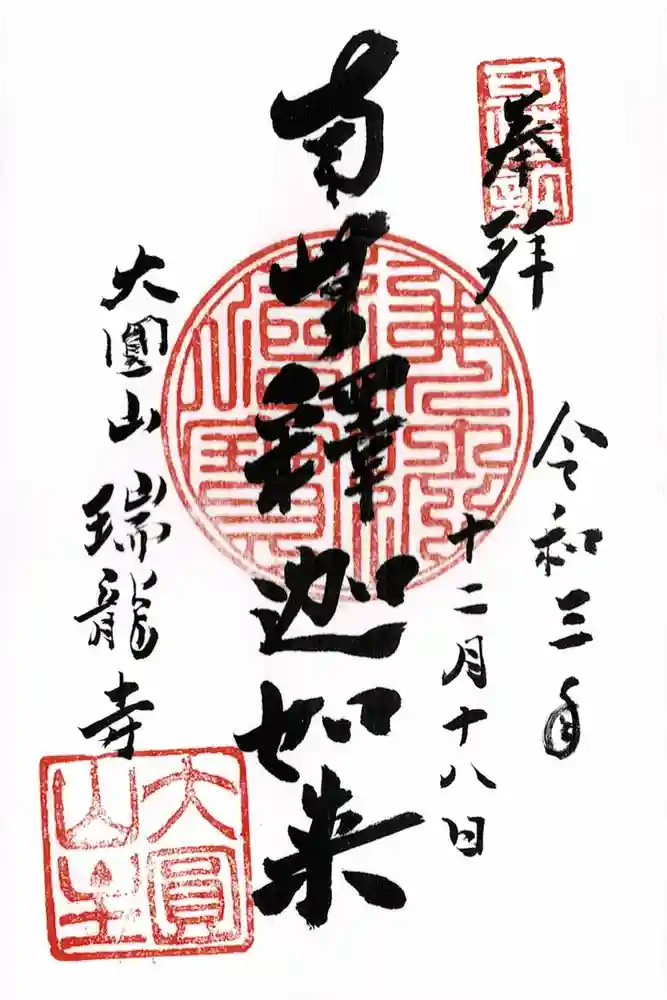 奉拝
令和三年
十二月十八日
南無釋迦如来
大圓山
瑞龍寺
大圓
山主